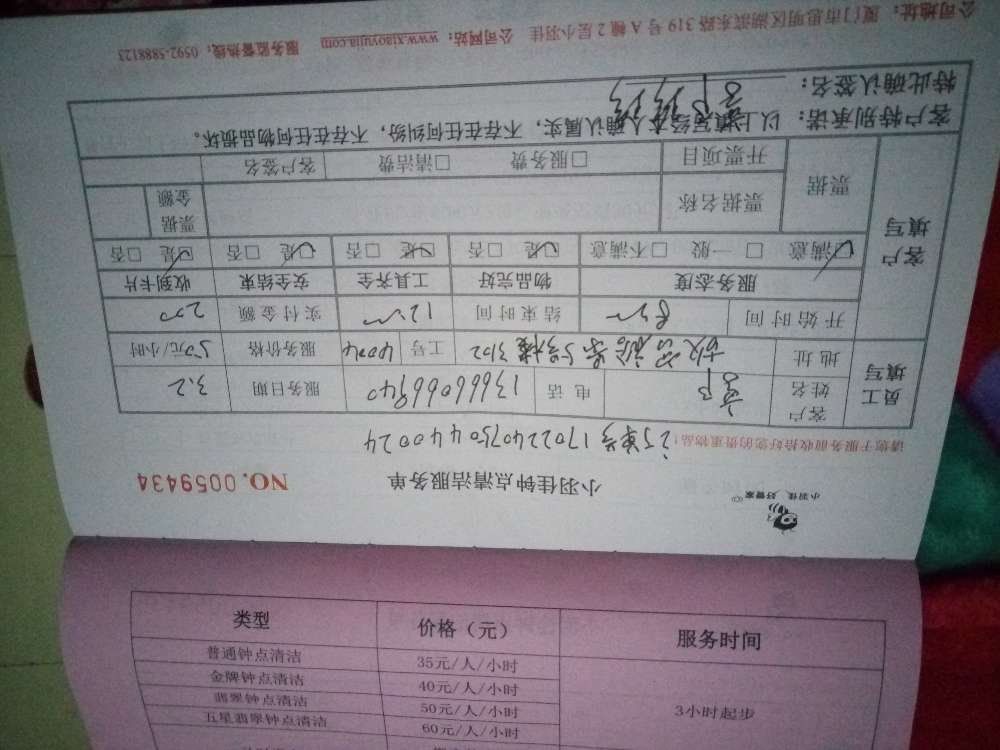 小羽佳 好管家
小羽佳钟点清洁服务单 NO.0059434
请您于服务前收拾好您的贵重物品!
订单号 1702240750440024
员工填写
客户姓名 电话 13666066940 服务日期 3.2
地址 3102 工号 4004 服务价格 50元/小时
开始时间 结束时间 实付金额 200
客户填写
服务态度 物品完好 工具齐全 安全结束 收到卡片
☑满意 □一般 □不满意 ☑是 □否 ☑是 □否 ☑是 □否 ☑是 □否
票据 票据名称 票据金额
开票项目 □服务费 □清洁费 客户签名
客户特别承诺:以上填写经本人确认属实,不存在任何纠纷,不存在任何物品损坏。
特此确认签名:
公司地址:厦门市思明区湖滨东路319号A幢2层小羽佳 公司网站:www.xiaoyujia.com 服务监督热线:0592-5888123
类型 价格(元) 服务时间
普通钟点清洁 35元/人/小时
金牌钟点清洁 40元/人/小时
翡翠钟点清洁 50元/人/小时
五星翡翠钟点清洁 60元/人/小时
3小时起步